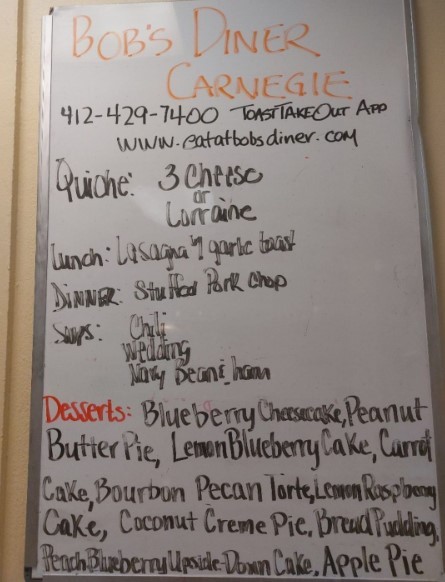 BOB'S DINER
CARNEGIE
412-429-7400 TOASTTAKEOUT APP
www.eatatbobsdiner.com
Quiche: 3 Cheese
or
Lorraine
Lunch: Lasagna 'n garlic toast
DINNER: Stuffed Pork Chop
Soups: Chili
Wedding
Navy Bean & ham
Desserts: Blueberry Cheesecake, Peanut
Butter Pie, Lemon Blueberry Cake, Carrot
Cake, Bourbon Pecan Torte, Lemon Raspberry
Cake, Coconut Creme Pie, Bread Pudding,
Peach Blueberry Upside-Down Cake, Apple Pie